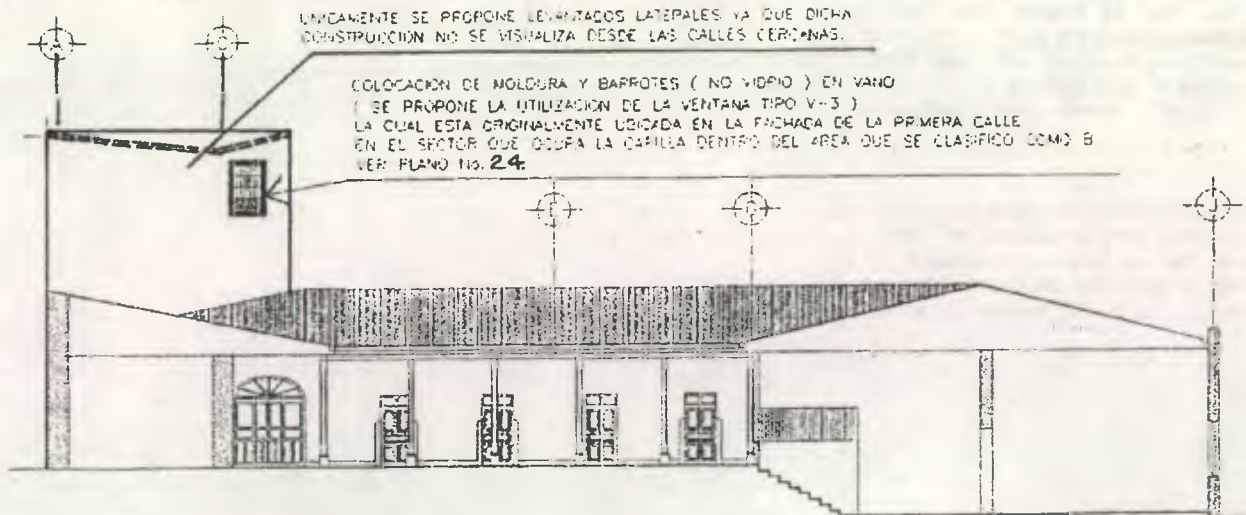 UNICAMENTE SE PROPONE LEVANTADOS LATERALES YA QUE DICHA
CONSTRUCCION NO SE VISUALIZA DESDE LAS CALLES CERCANAS.
COLOCACION DE MOLDURA Y BARROTES ( NO VIDRIO ) EN VANO
( SE PROPONE LA UTILIZACION DE LA VENTANA TIPO V-3 )
LA CUAL ESTA ORIGINALMENTE UBICADA EN LA FACHADA DE LA PRIMERA CALLE
EN EL SECTOR QUE OCUPA LA CAPILLA DENTRO DEL AREA QUE SE CLASIFICO COMO B
VER PLANO No. 24.
A C
J